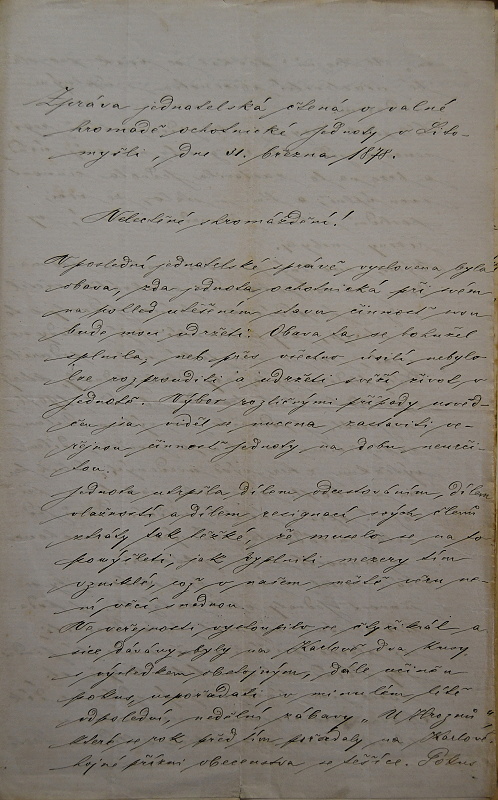 Zpráva jednatelská čtená v valné
hromadě ochotnické jednoty v Lito-
myšli, dne 31. března 1878.
Velectěné shromáždění!
V poslední jednatelské zprávě vyslovena byla
obava, zda jednota ochotnická při svém
na pohled utěšeném stavu činnost svou
bude moci udržeti. Obava ta se bohužel
splnila, neb přes všechno úsilí nebylo
lze rozprouditi a udržeti svěží život v
jednotě. Výbor rozličnými případy
jsa viděl se nucena zastaviti ve-
řejnou činnost jednoty na dobu neurči-
tou.
Jednota utrpěla dílem odcestováním, dílem
vlažností a dílem resignací svých členů
ztráty tak těžké, že muselo se na to
pomýšleti, jak vyplniti mezery tím
vzniklé, což v našem městě věru ne-
ní věcí snadnou.
Na veřejnosti vystoupilo se čtyřikrát a
sice dávány byly na Karlově dva kusy
s výsledkem obstojným, dále učiněn
pokus, uspořádati v minulém létě
odpolední, nedělní zábavy „U Hroznu“,
které se rok před tím pořádaly na Karlově
hojné přízni obecenstva se těšíce. Pokus